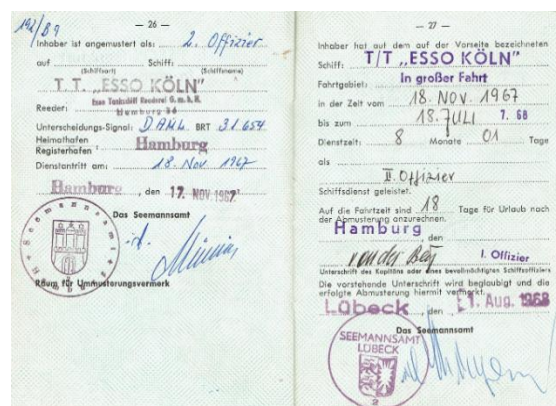 192/89
— 26 —
Inhaber ist angemustert als: 2. Offizier
auf Schiff:
(Schiffsart) (Schiffsname)
T. T. „ESSO KÖLN"
Reeder: Esso Tankschiff Reederei G.m.b.H.
Hamburg 36
Unterscheidungs-Signal: DAML BRT 31.654
Heimathafen
Registerhafen Hamburg
Dienstantritt am: 18. Nov. 1967
Hamburg, den 17. NOV. 1967
Das Seemannsamt
Seemannsamt
Raum für Ummusterungsvermerk
— 27 —
Inhaber hat auf dem auf der Vorseite bezeichneten
Schiff: T/T „ESSO KÖLN"
Fahrtgebiet: in großer Fahrt
in der Zeit vom 18. NOV. 1967
bis zum 18. JULI 7. 68
Dienstzeit: 8 Monate 01 Tage
als
II. Offizier
Schiffsdienst geleistet.
Auf die Fahrtzeit sind 18 Tage für Urlaub nach
der Abmusterung anzurechnen.
Hamburg, den
I. Offizier
Unterschrift des Kapitäns oder eines bevollmächtigten Schiffsoffiziers
Die vorstehende Unterschrift wird beglaubigt und die
erfolgte Abmusterung hiermit vermerkt.
Lübeck, den 1. Aug. 1968
Das Seemannsamt
SEEMANNSAMT
LÜBECK
2